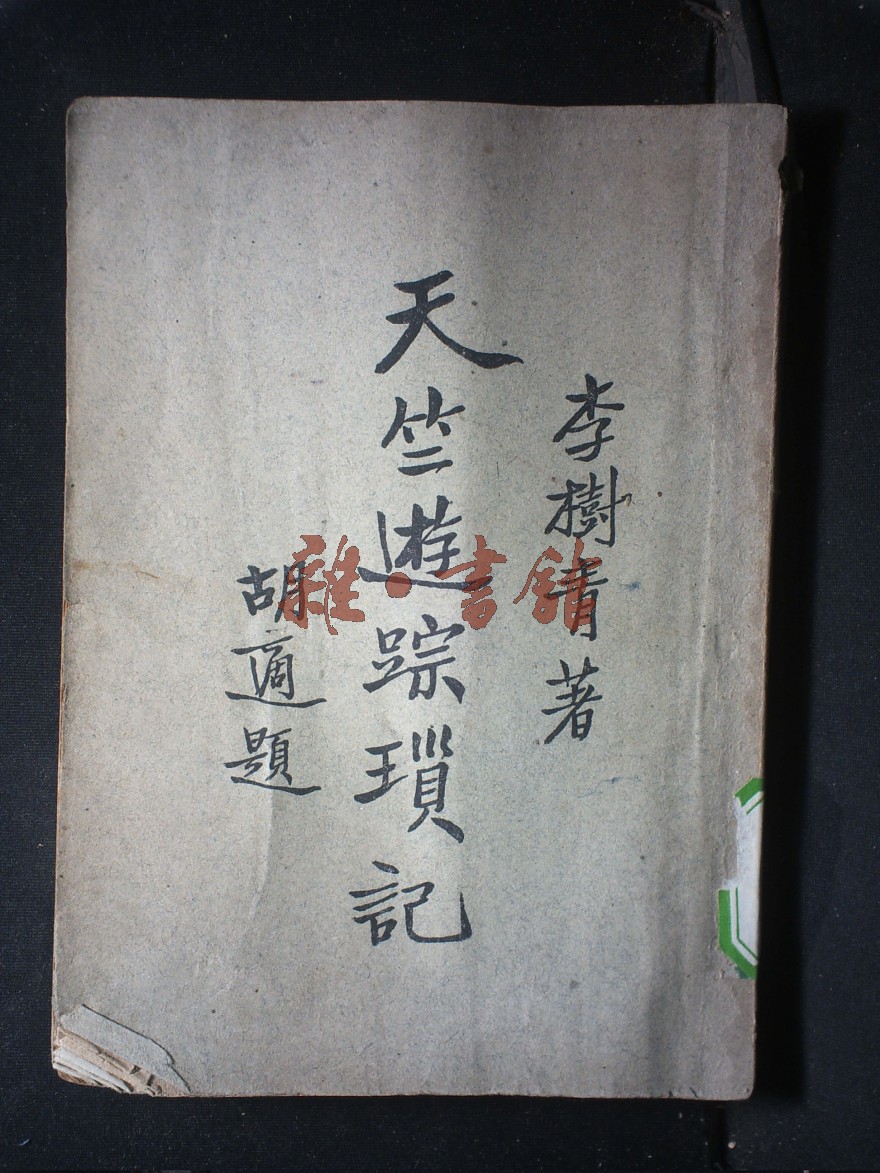 李樹青著
天竺遊踪瑣記
胡適題
雜·書館